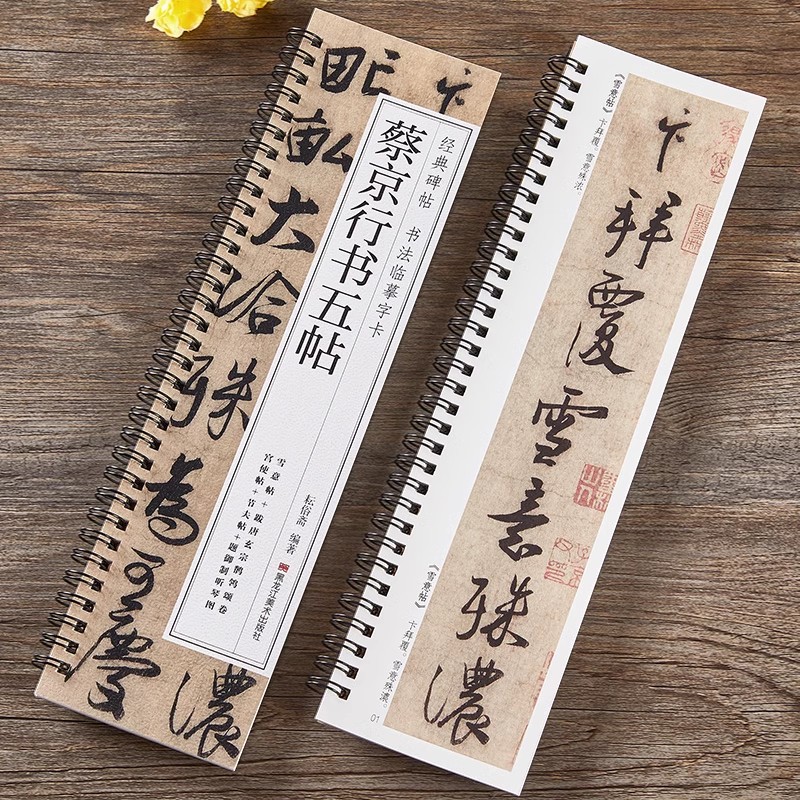 卞
濃
甿畆大洽殊為可慶
经典碑帖 书法临摹字卡
蔡京行书五帖
雪意帖+跋唐玄宗鹡鸰颂卷
宫使帖+节夫帖+题御制听琴图
耘俗斋 编著
黑龙江美术出版社
《雪意帖》 卞拜覆。雪意殊浓。
卞拜覆雪意殊濃
《雪意帖》 卞拜覆。雪意殊濃。
01